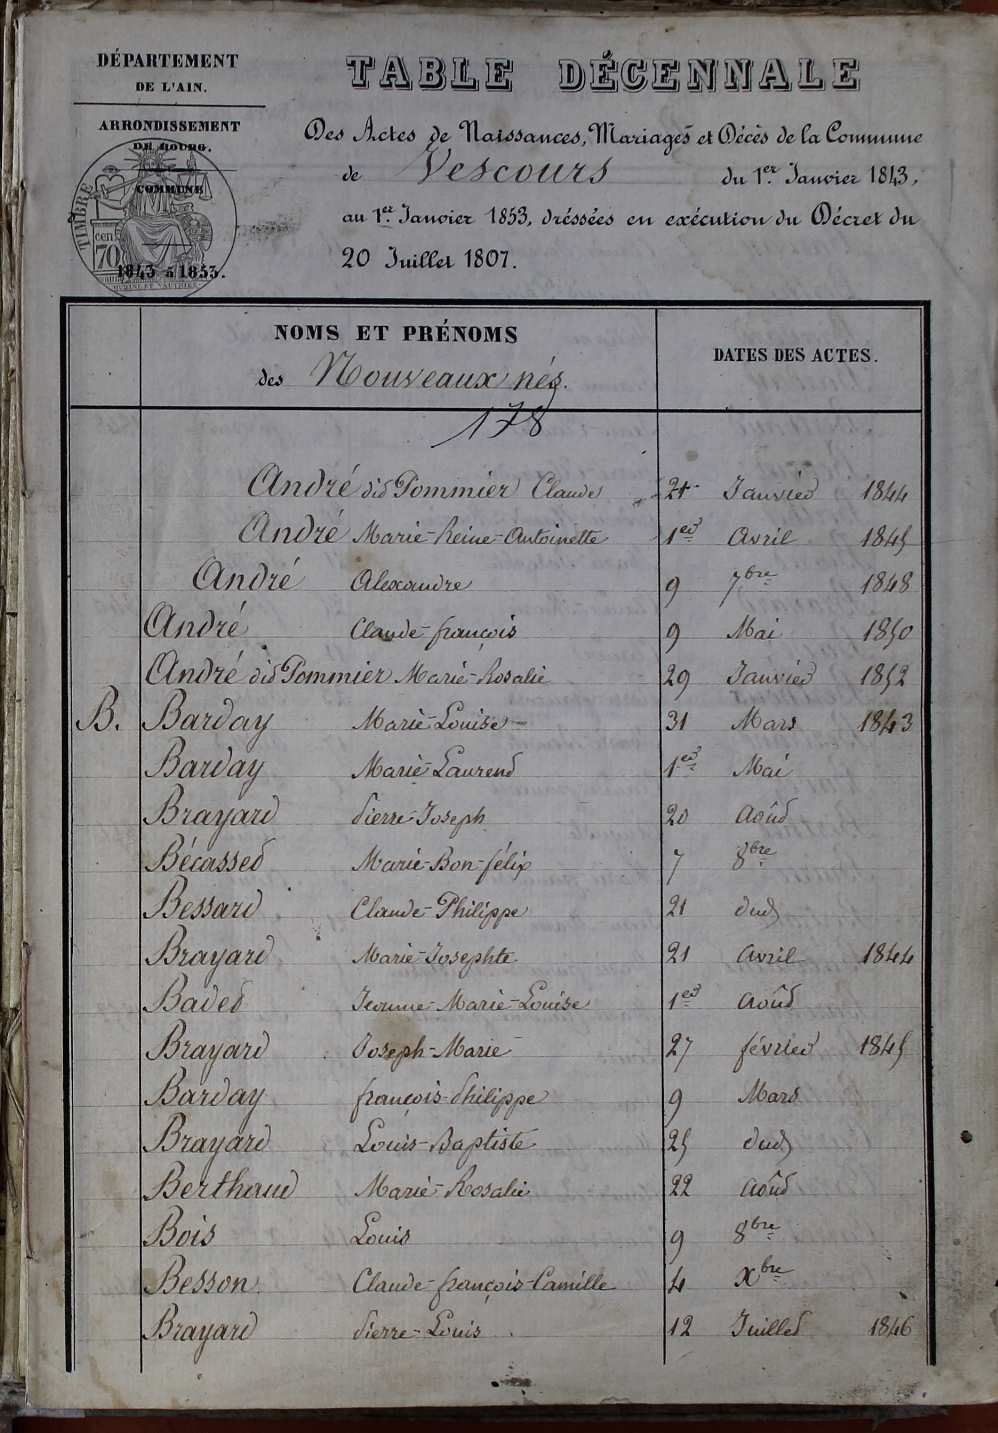 DÉPARTEMENT
DE L'AIN.
ARRONDISSEMENT
DE BOURG.
COMMUNE
TIMBRE
cen 70
1843 à 1853.
TABLE DÉCENNALE
Des Actes de Naissances, Mariages et Décès de la Commune
de Vescours du 1er Janvier 1843,
au 1er Janvier 1853, dréssées en exécution du Décret du
20 Juillet 1807.
NOMS ET PRÉNOMS
des Nouveaux nés.
DATES DES ACTES.
178
André dit Pommier Claude 21 Janvier 1844
André Marie-Reine-Antoinette 1er Avril 1845
André Alexandre 9 7bre 1848
André Claude-françois 9 Mai 1850
André dit Pommier Marie-Rosalie 29 Janvier 1852
B. Barday Marie-Louise 31 Mars 1843
Barday Marie-Laurent 1er Mai
Brayard Pierre-Joseph 20 Août
Bécasset Marie-Bon-félix 7 8bre
Bessard Claude-Philippe 21 dud
Brayard Marie-Josephte 21 Avril 1844
Badet Jeanne-Marie-Louise 1er Août
Brayard Joseph-Marie 27 février 1845
Barday françois-Philippe 9 Mars
Brayard Louis-Baptiste 25 dud
Berthaud Marie-Rosalie 22 Août
Bois Louis 9 8bre
Besson Claude-françois-Camille 4 Xbre
Brayard Pierre-Louis 12 Juillet 1846